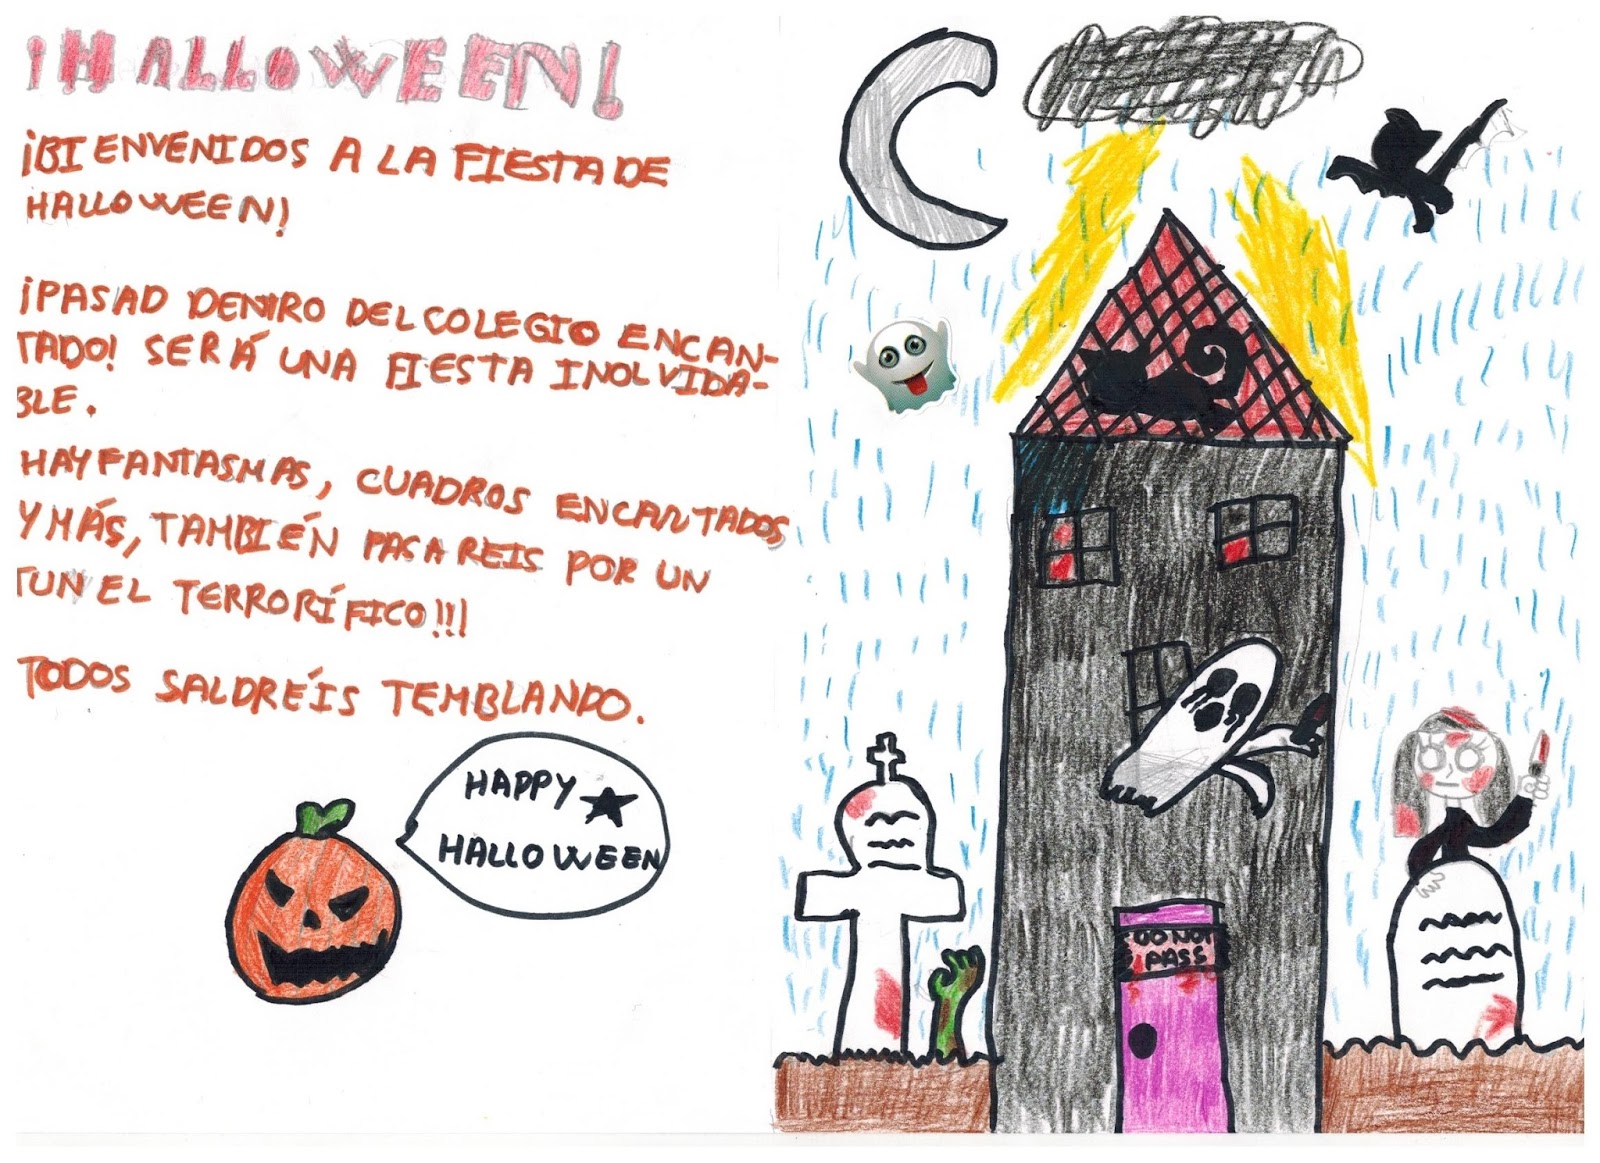 ¡HALLOWEEN!
¡BIENVENIDOS A LA FIESTA DE
HALLOWEEN!
¡PASAD DENTRO DEL COLEGIO ENCAN-
TADO! SERÁ UNA FIESTA INOLVIDA-
BLE.
HAY FANTASMAS, CUADROS ENCANTADOS
Y MÁS, TAMBIÉN PASAREIS POR UN
TUNEL TERRORÍFICO!!!
TODOS SALDRÉIS TEMBLANDO.
HAPPY
HALLOWEEN
DO NOT
PASS